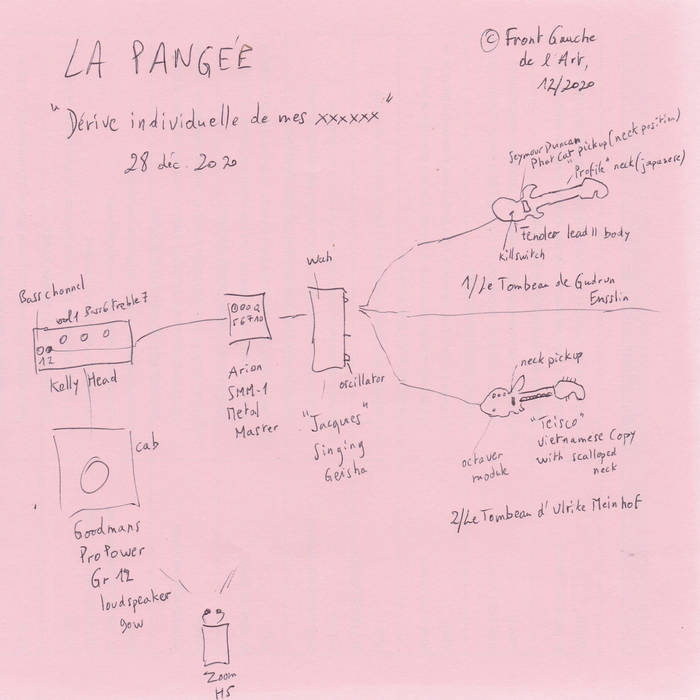 LA PANGÉE
© Front Gauche
de l'Art,
12/2020
"Dérive individuelle de mes xxxxxx"
28 déc. 2020
Seymour Duncan
Phat Cat pickup (neck position)
"Profile" neck (japanese)
Fender lead II body
killswitch
1/Le Tombeau de Gudrun
Ensslin
Bass channel
vol 1 Bass 6 treble 7
1 2
Kelly Head
cab
Goodmans
Pro Power
Gr 12
loudspeaker
90W
5 6 7 10
Arion
SMM-1
Metal
Master
Wah
oscillator
"Jacques"
Singing
Geisha
neck pickup
octaver
module
"Teisco"
Vietnamese Copy
with scalloped
neck
2/Le Tombeau d'Ulrike Meinhof
Zoom
H5